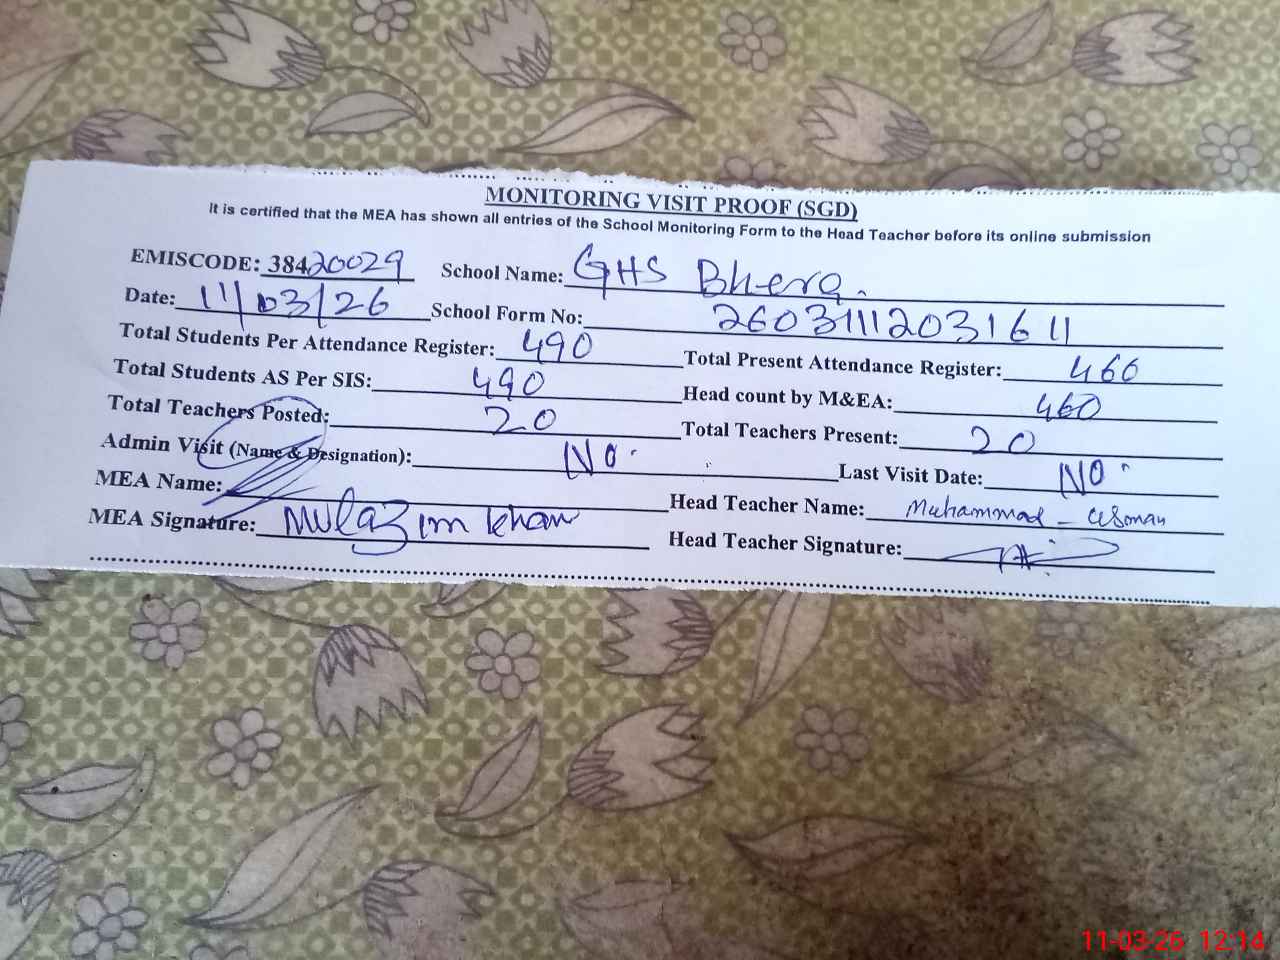 MONITORING VISIT PROOF (SGD)
It is certified that the MEA has shown all entries of the School Monitoring Form to the Head Teacher before its online submission
EMISCODE: 38420029 School Name: GHS Bhera.
Date: 11/03/26 School Form No: 26031112031611
Total Students Per Attendance Register: 490 Total Present Attendance Register: 466
Total Students AS Per SIS: 490 Head count by M&EA: 460
Total Teachers Posted: 20 Total Teachers Present: 20
Admin Visit (Name & Designation): No. Last Visit Date: No.
MEA Name: Head Teacher Name: Muhammad - Usman
MEA Signature: Mulazim Khan Head Teacher Signature:
11-03-26 12:14